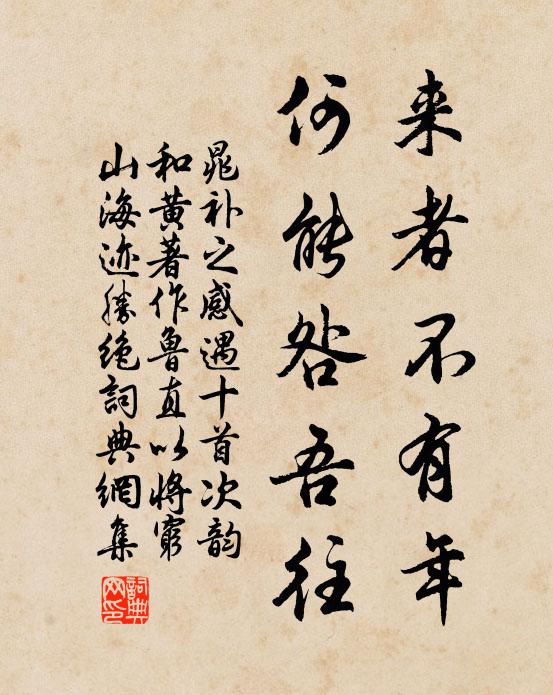 来者不有年
何能咎吾往
晁补之感遇十首次韵
和黄著作鲁直以将穷
山海迹胜绝词典网集
词典网印